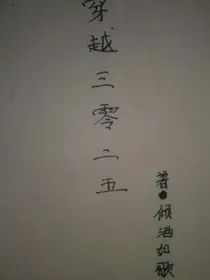 穿越三零二五
著 倾酒如歌